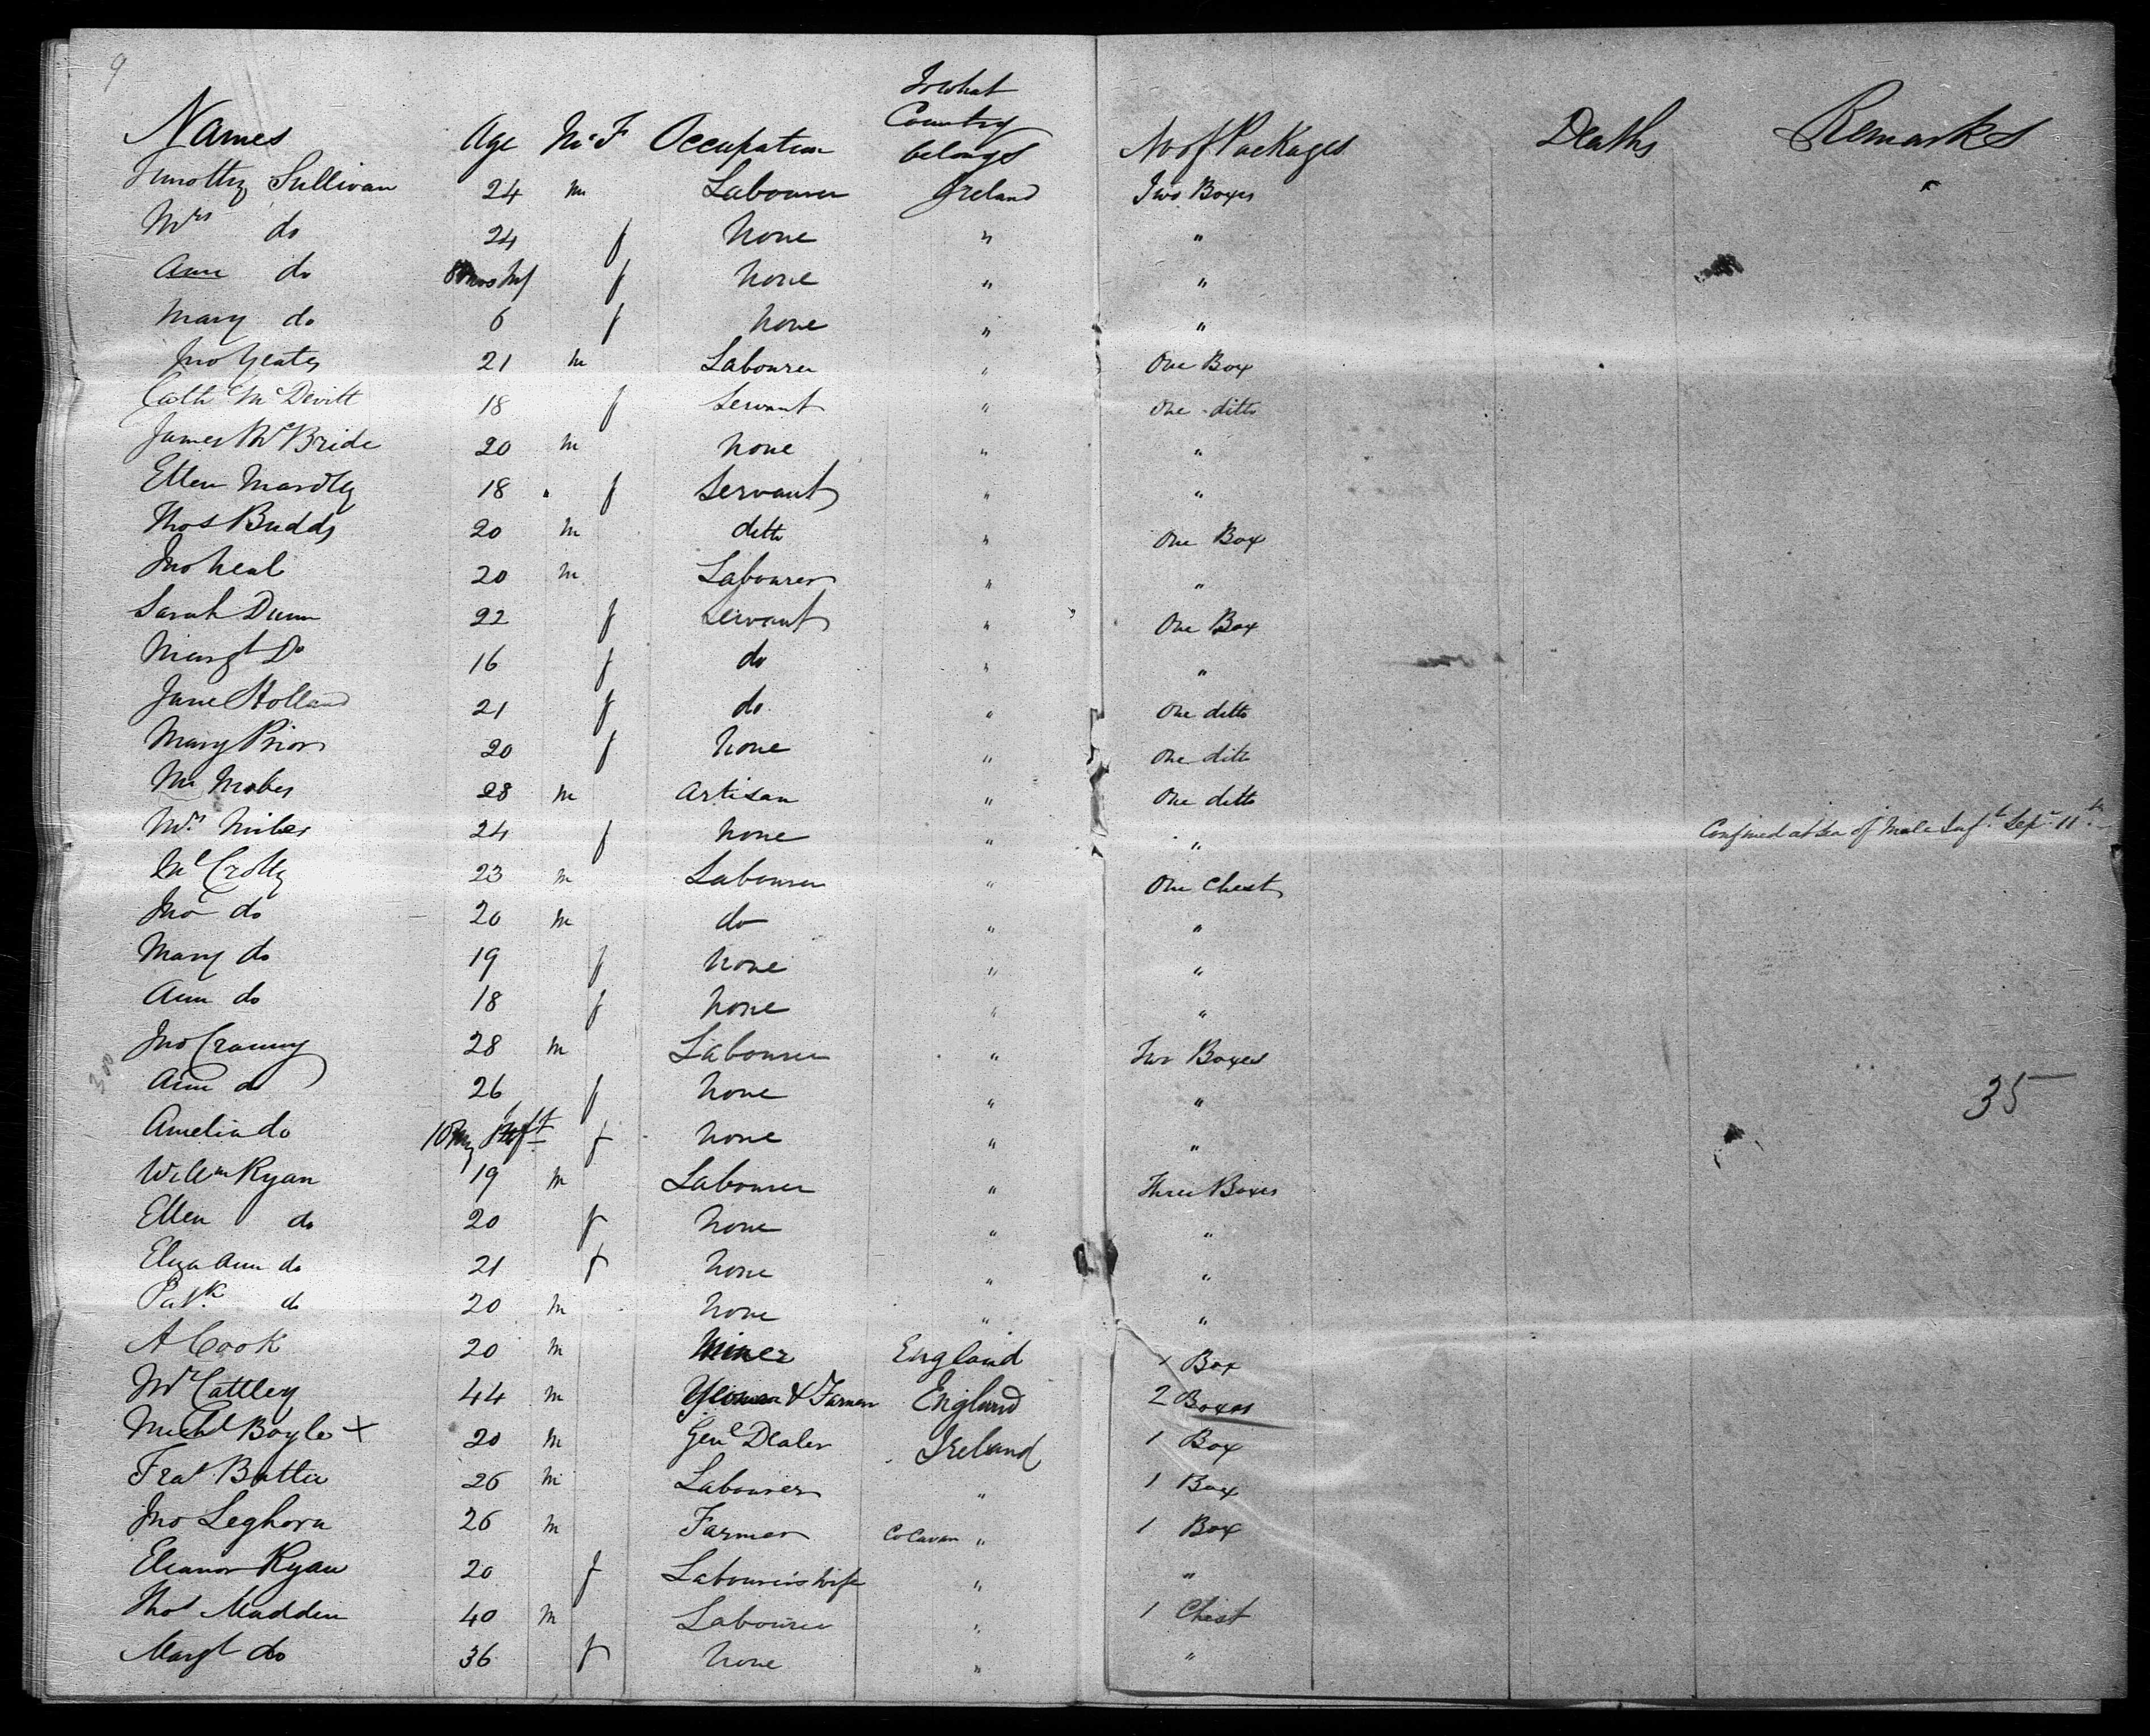 9
To what
Country
Names Age M F Occupation belongs No of Packages Deaths Remarks
Timothy Sullivan 24 m Labourer Ireland Two Boxes
Mrs do 24 f None " "
Ann do f None " "
Mary do 6 f None " "
Jno Yeates 21 m Labourer " One Box
Cath McDevitt 18 f Servant " One ditto
James McBride 20 m None " "
Ellen 18 f Servant " "
Thos Budds 20 m ditto " One Box
Jno Neal 20 m Labourer " "
Sarah Dunn 22 f Servant " One Box
Margt Do 16 f do " "
Jane Holland 21 f do " One ditto
Mary Prior 20 f None " One ditto
28 m Artisan " One ditto
Mrs 24 f None " " Confined at Sea of Male Inft Sepr 11th
Crotty 23 m Labourer " One Chest
Jno do 20 m do " "
Mary do 19 f None " "
Ann do 18 f None " "
300
Jno Cranny 28 m Labourer " Two Boxes
Ann do 26 f None " " 35
Amelia do 10 Inft f None " "
Willm Ryan 19 m Labourer " Three Boxes
Ellen do 20 f None " "
Eliza Ann do 21 f None " "
Patk do 20 m None " "
A Cook 20 m Miner England 1 Box
Mr Cattley 44 m & Farmer England 2 Boxes
Michl Boyle + 20 m Genl Dealer Ireland 1 Box
Fras 26 m Labourer " 1 Box
Jno Leghorn 26 m Farmer Co Cavan " 1 Box
Eleanor Ryan 20 f Labourers Wife " "
Thos Madden 40 m Labourer " 1 Chest
Margt do 36 f None " "